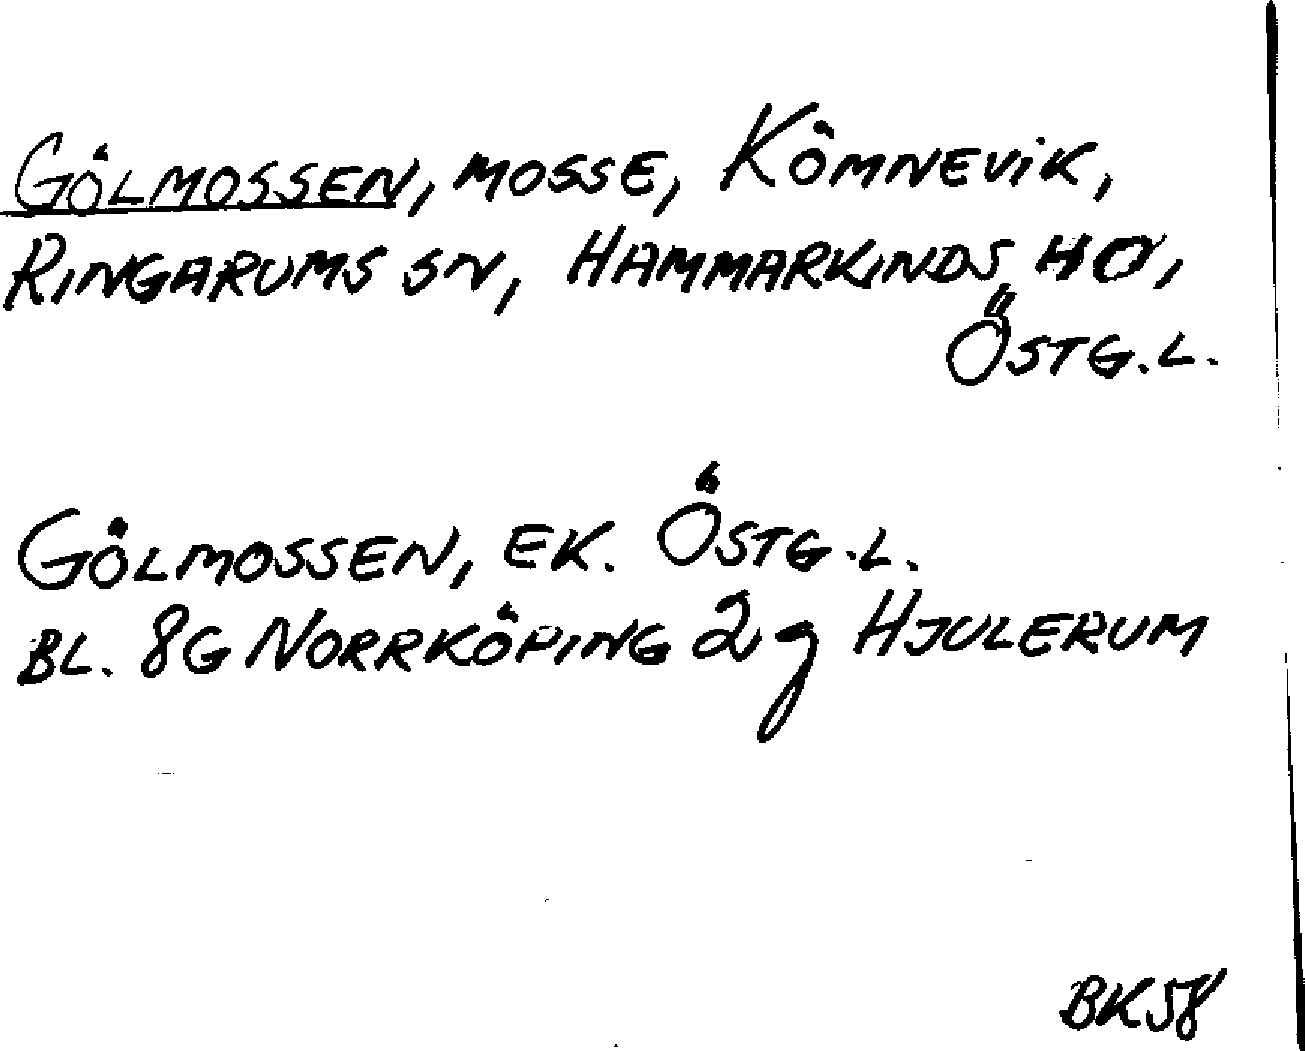 GÖLMOSSEN, MOSSE, KÖMNEVIK,
RINGARUMS SN, HAMMARKINDS HD,
ÖSTG.L.
GÖLMOSSEN, EK. ÖSTG.L.
BL. 8G NORRKÖPING 2g HJULERUM
BK58